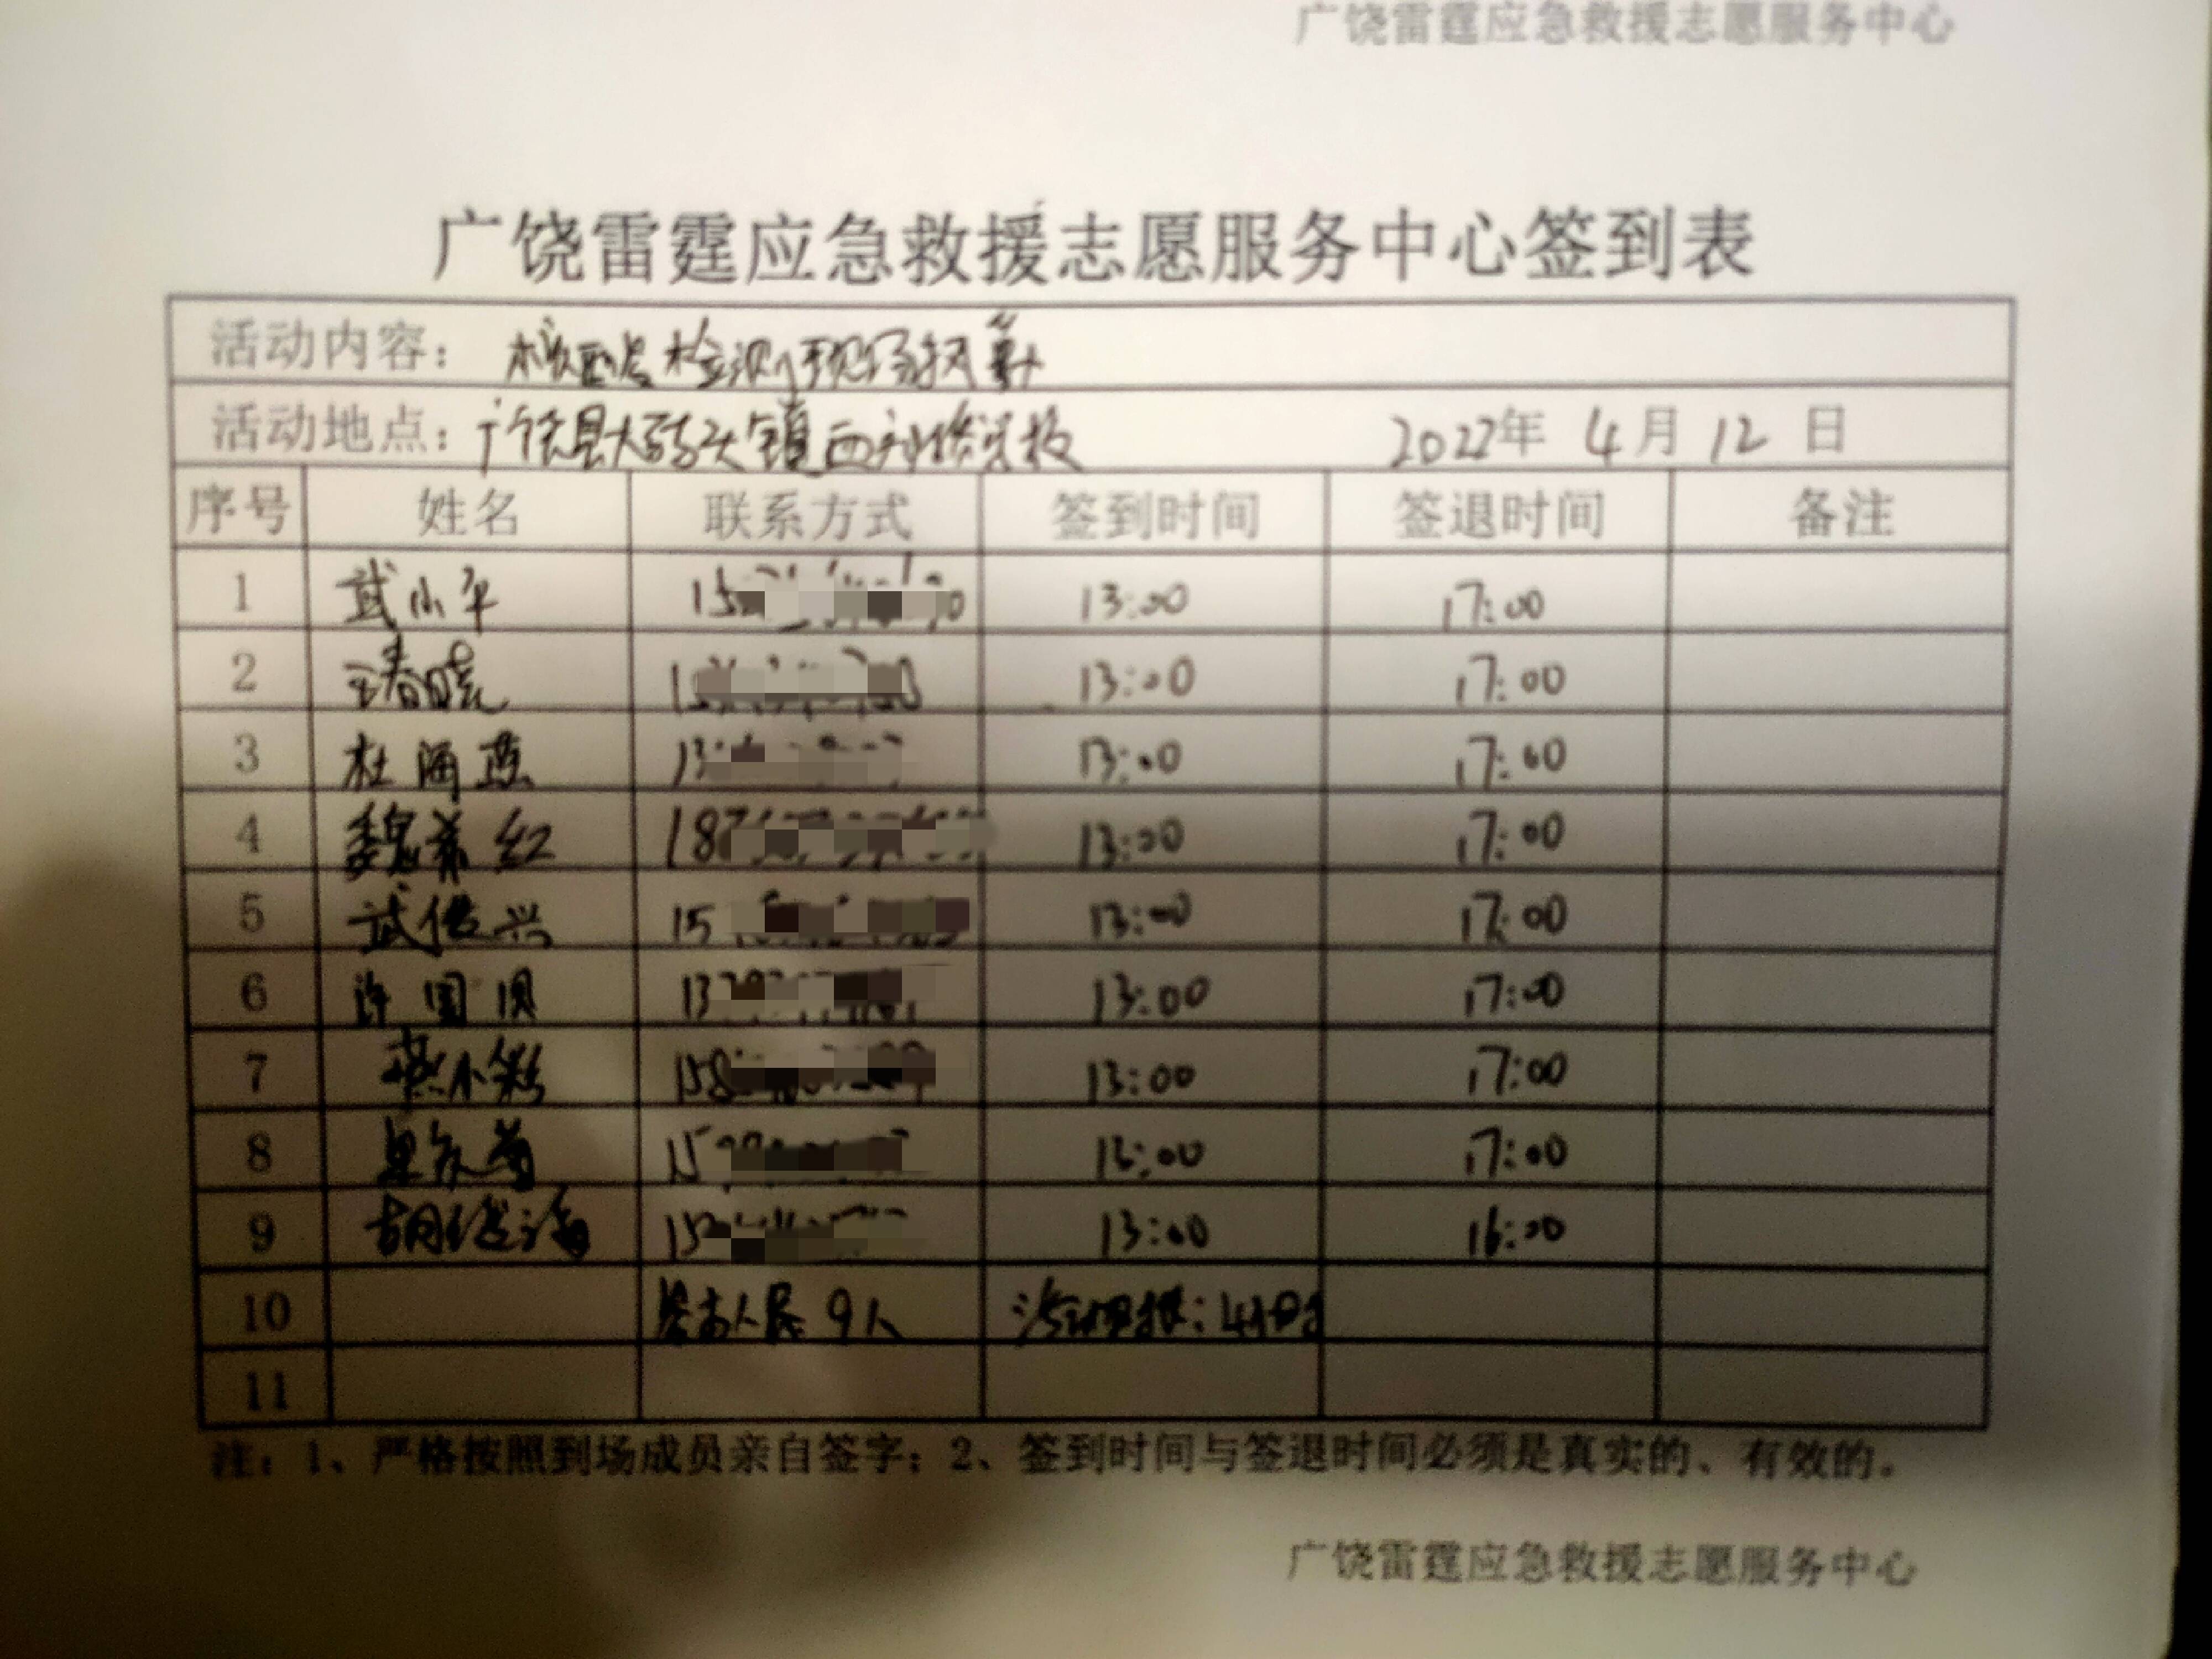 广饶雷霆应急救援志愿服务中心
广饶雷霆应急救援志愿服务中心签到表
活动内容： 核酸检测现场执勤
活动地点： 广饶县大码头镇西刘桥 2022年 4月 12日
序号 姓名 联系方式 签到时间 签退时间 备注
1 武小平 13:00 17:00
2 王春晓 13:00 17:00
3 杜海燕 13:00 17:00
4 魏希红 187 13:00 17:00
5 武传兴 15 13:00 17:00
6 许国 13 13:00 17:00
7 燕小彩 158 13:00 17:00
8 15 13:00 17:00
9 胡 15 13:00 16:00
10 9人 活动 4小时
11
注：1、严格按照到场成员亲自签字；2、签到时间与签退时间必须是真实的、有效的。
广饶雷霆应急救援志愿服务中心